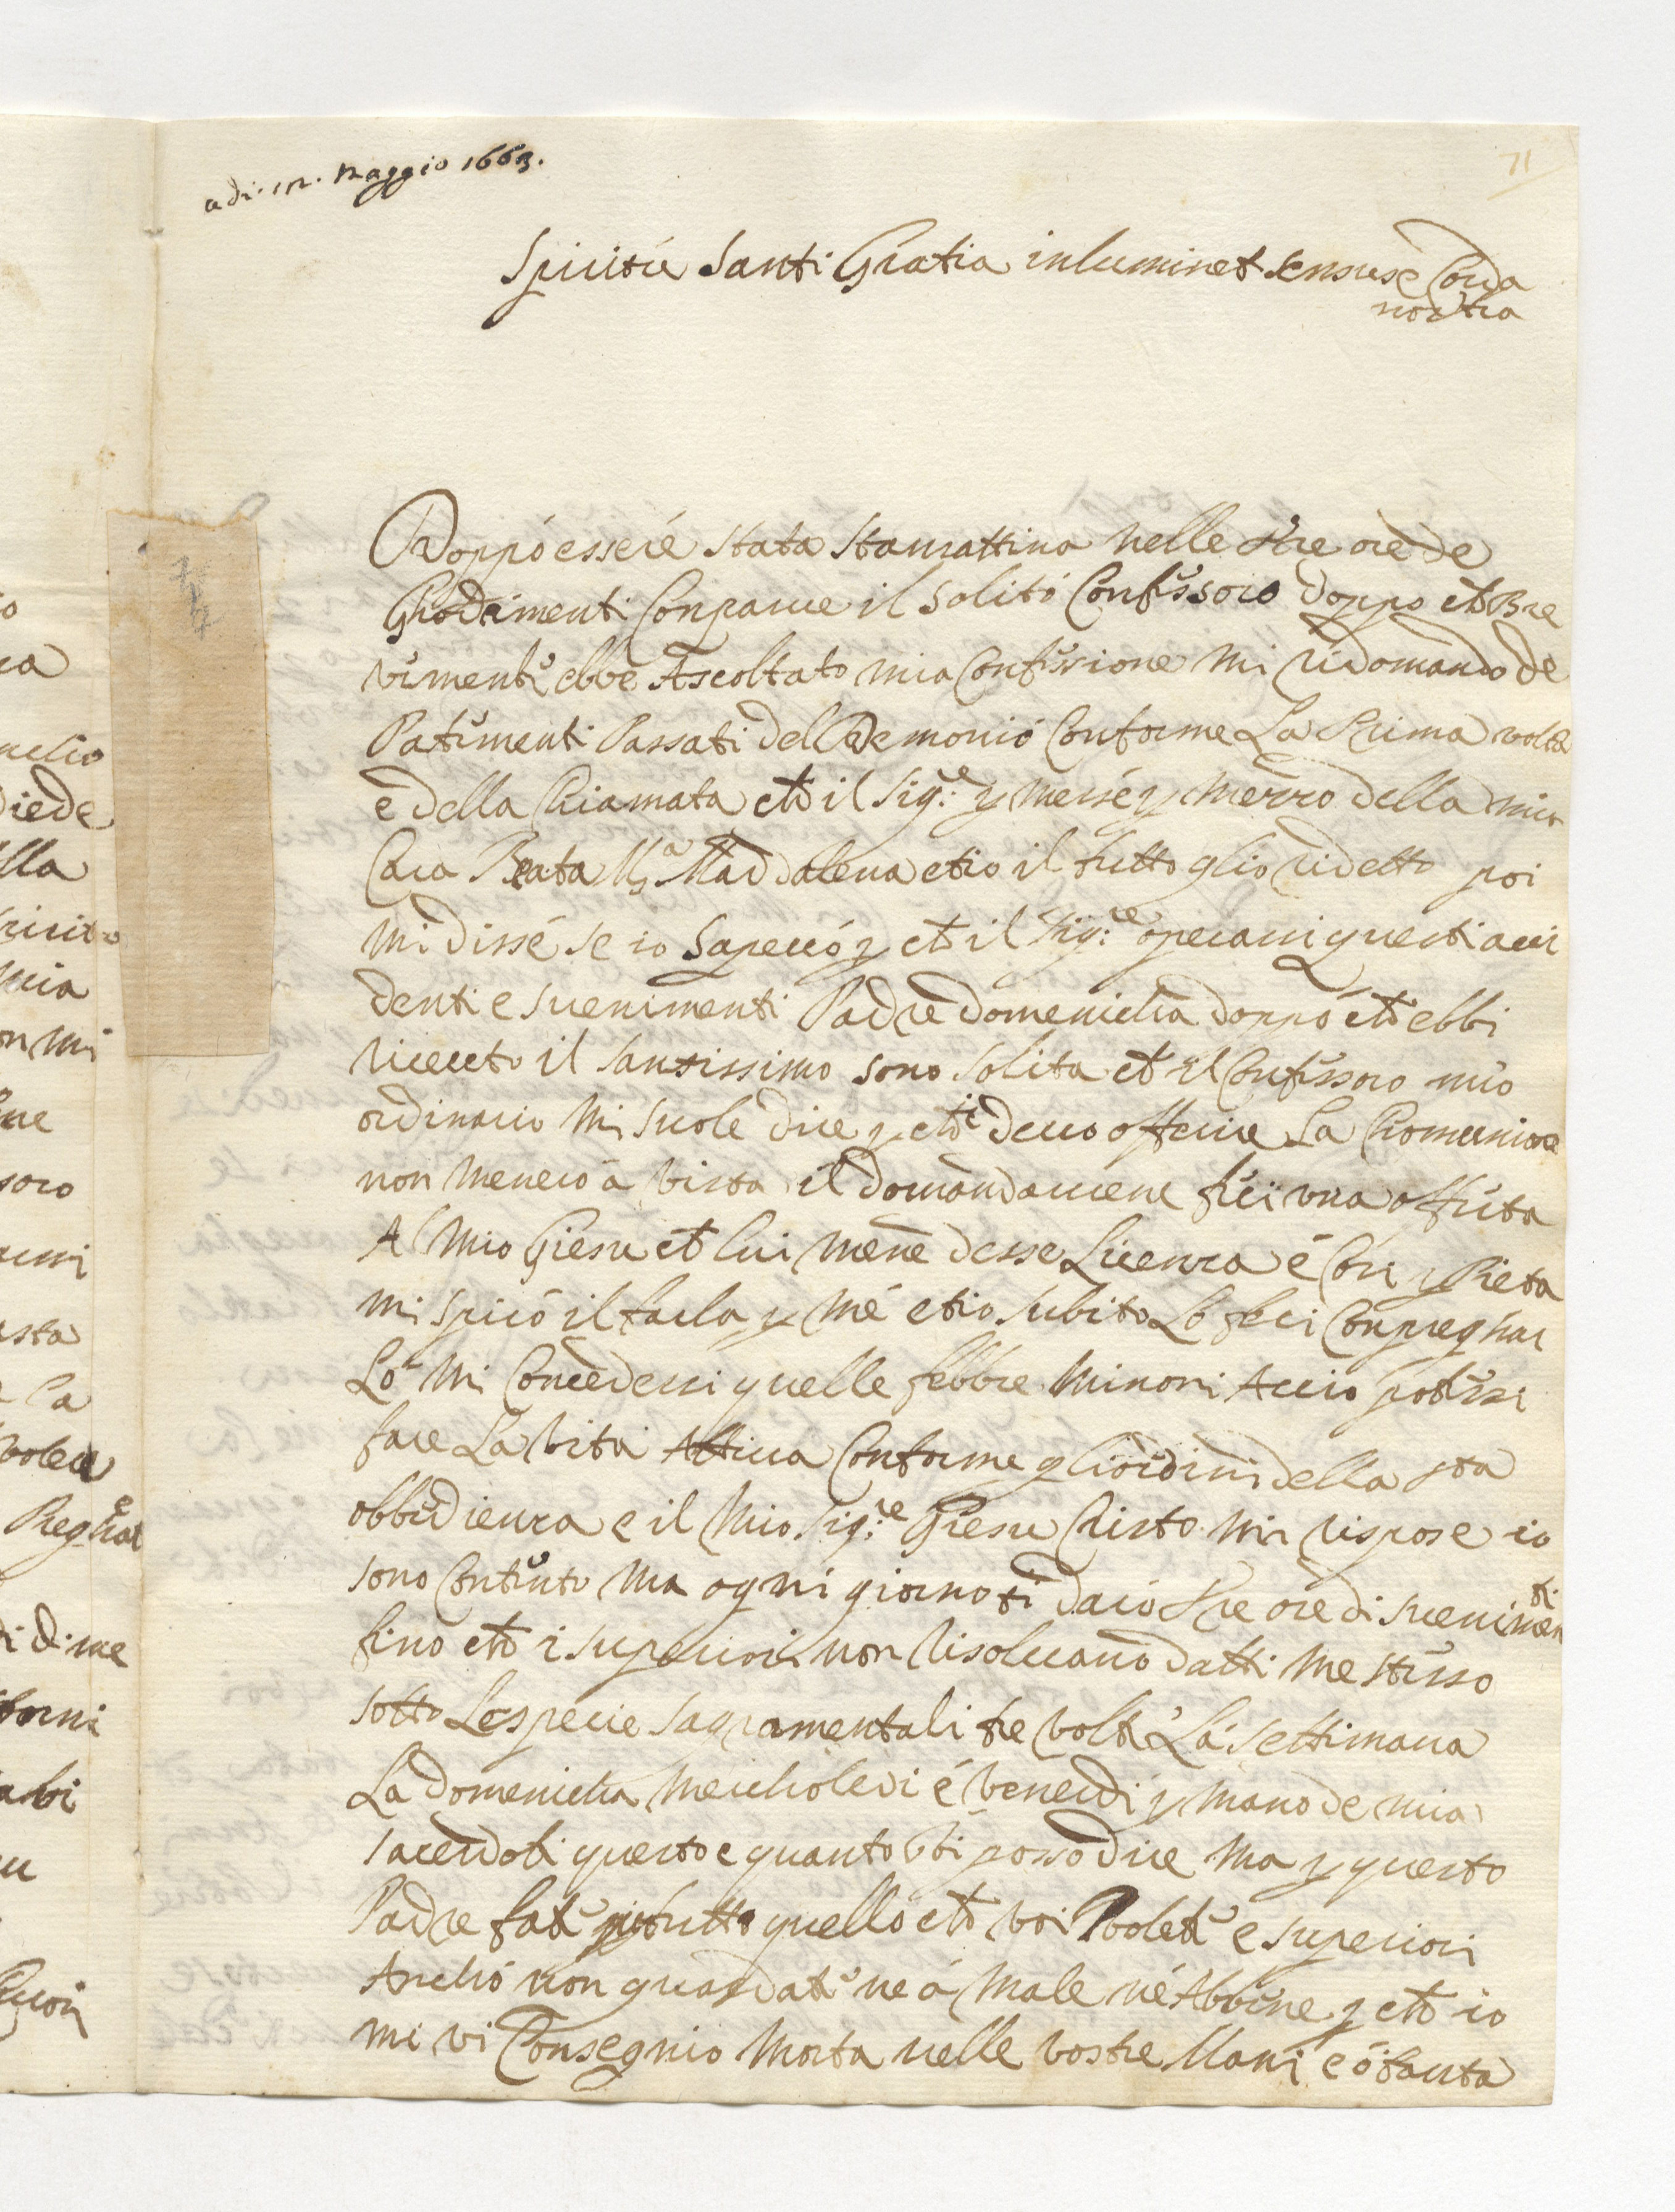 adi. 12. Maggio 1663.
71
Spiritu Santi Gratia inluminet sensus e Corda
nostra
Doppó esseré stata stamattina nelle tre ore de
Ghodimenti Conparve il solitó Confessoro doppo che Bre
vemente ebbe Ascoltato mia Confessione mi ridomando de
Patimenti Passati del Demonió Conforme La Prima volta
e della Chiamata che il Sig:re p mersé p merzo della mia
Cara Beata Ma Maddalena etio il tutto glio ridetto poi
mi dissé se io Sapevó p che il Sig:re operassi questi acci
denti e svenimenti Padre domenicha doppó che ebbi
riceuto il santissimo sono solita che il Confessoro mio
ordinario mi suole dire p chi devo offerire La Chomunione
non menero á vista il domandarmene feci una offerta
Al mio Giesu che lui mene desse Licenza é Con p Pieta
mi spiró il farla p mé etio subito Ló feci Con preghar
Ló mi Concedessi quelle febbre minori Accio potessi
fare La vita Attiva Conforme gli ordini della sta
obbedienza e il mio Sig:re Giesu Cristo mi rispose io
sono Contento ma ogni giorno ti daró tre ore di svenimen
ti
fino che i superiori non risolvano datti me stesso
sotto Le specie sagramentali tre volte Lá settimana
La domenicha mercholedi é venerdi p mano de mia
sacerdoti questo e quanto vi posso dire ma p questo
Padre fate tutto quelló che voi volete e superiori
Anchó non guardate ne á male né Abbene p che io
mi vi Consegnio morta nelle vostre Mani e ó tanta